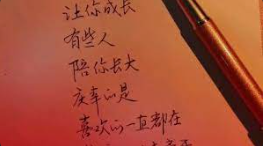 让你成长
有些人
陪你长大
庆幸的是
喜欢的一直都在